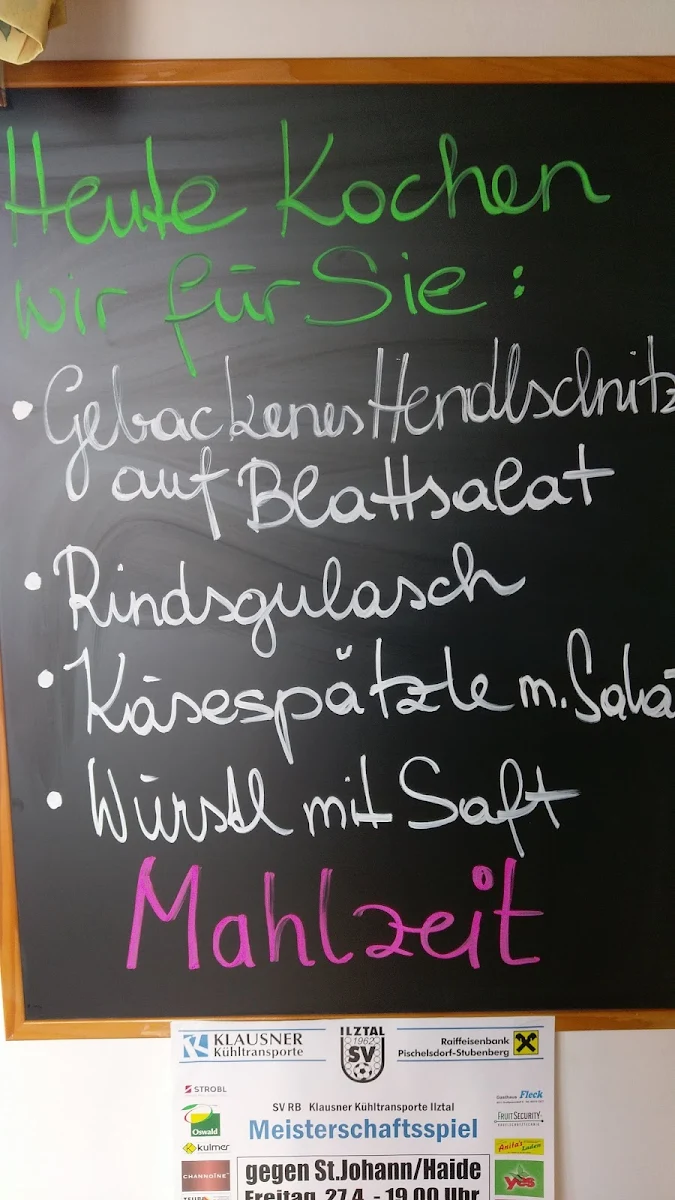 Heute Kochen
wir für Sie:
• Gebackenes Hendlschnitz
auf Blattsalat
• Rindsgulasch
• Käsespätzle m. Sala
• Würstl mit Saft
Mahlzeit
KLAUSNER
Kühltransporte
ILZTAL
1962
SV
Raiffeisenbank
Pischelsdorf-Stubenberg
STROBL
Oswald
kulmer
CHANNOINE
Fleck
FRUITSECURITY
Anita's
Laden
yes
SV RB Klausner Kühltransporte Ilztal
Meisterschaftsspiel
gegen St.Johann/Haide
Freitag, 27.4. - 19.00 Uhr